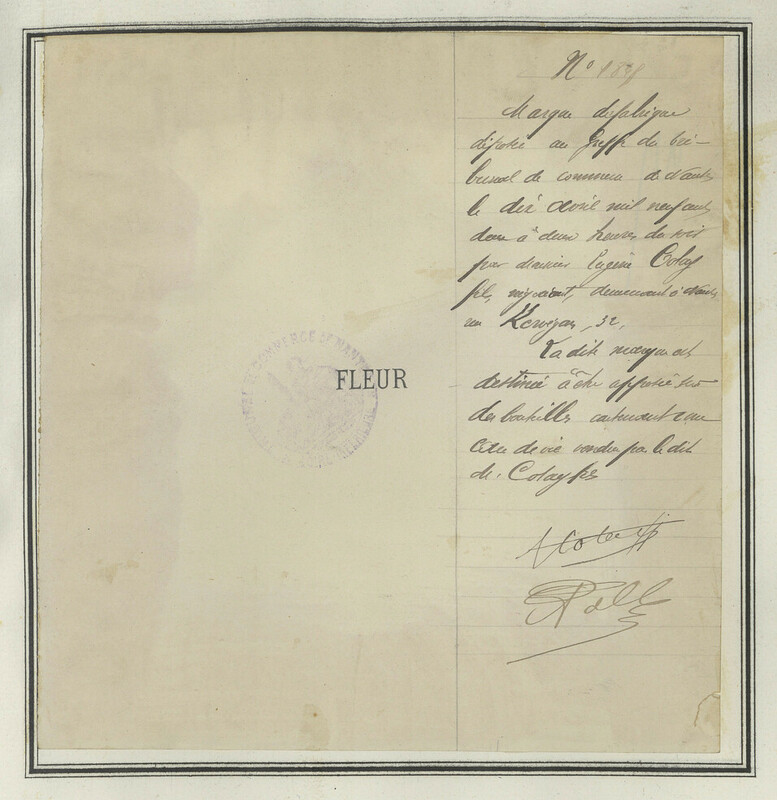 N° 1835
Marque de fabrique
déposée au Greffe du tri-
bunal de commerce de Nantes
le dix avril mil neuf cent
deux à deux heures du soir
par monsieur Eugène Colas
fils, négociant, demeurant à Nantes
rue Kervégan, 32,
La dite marque est
destinée à être apposée sur
des bouteilles contenant une
eau de vie vendue par le dit
Mr. Colas fils
FLEUR
COMMERCE DE NANTES